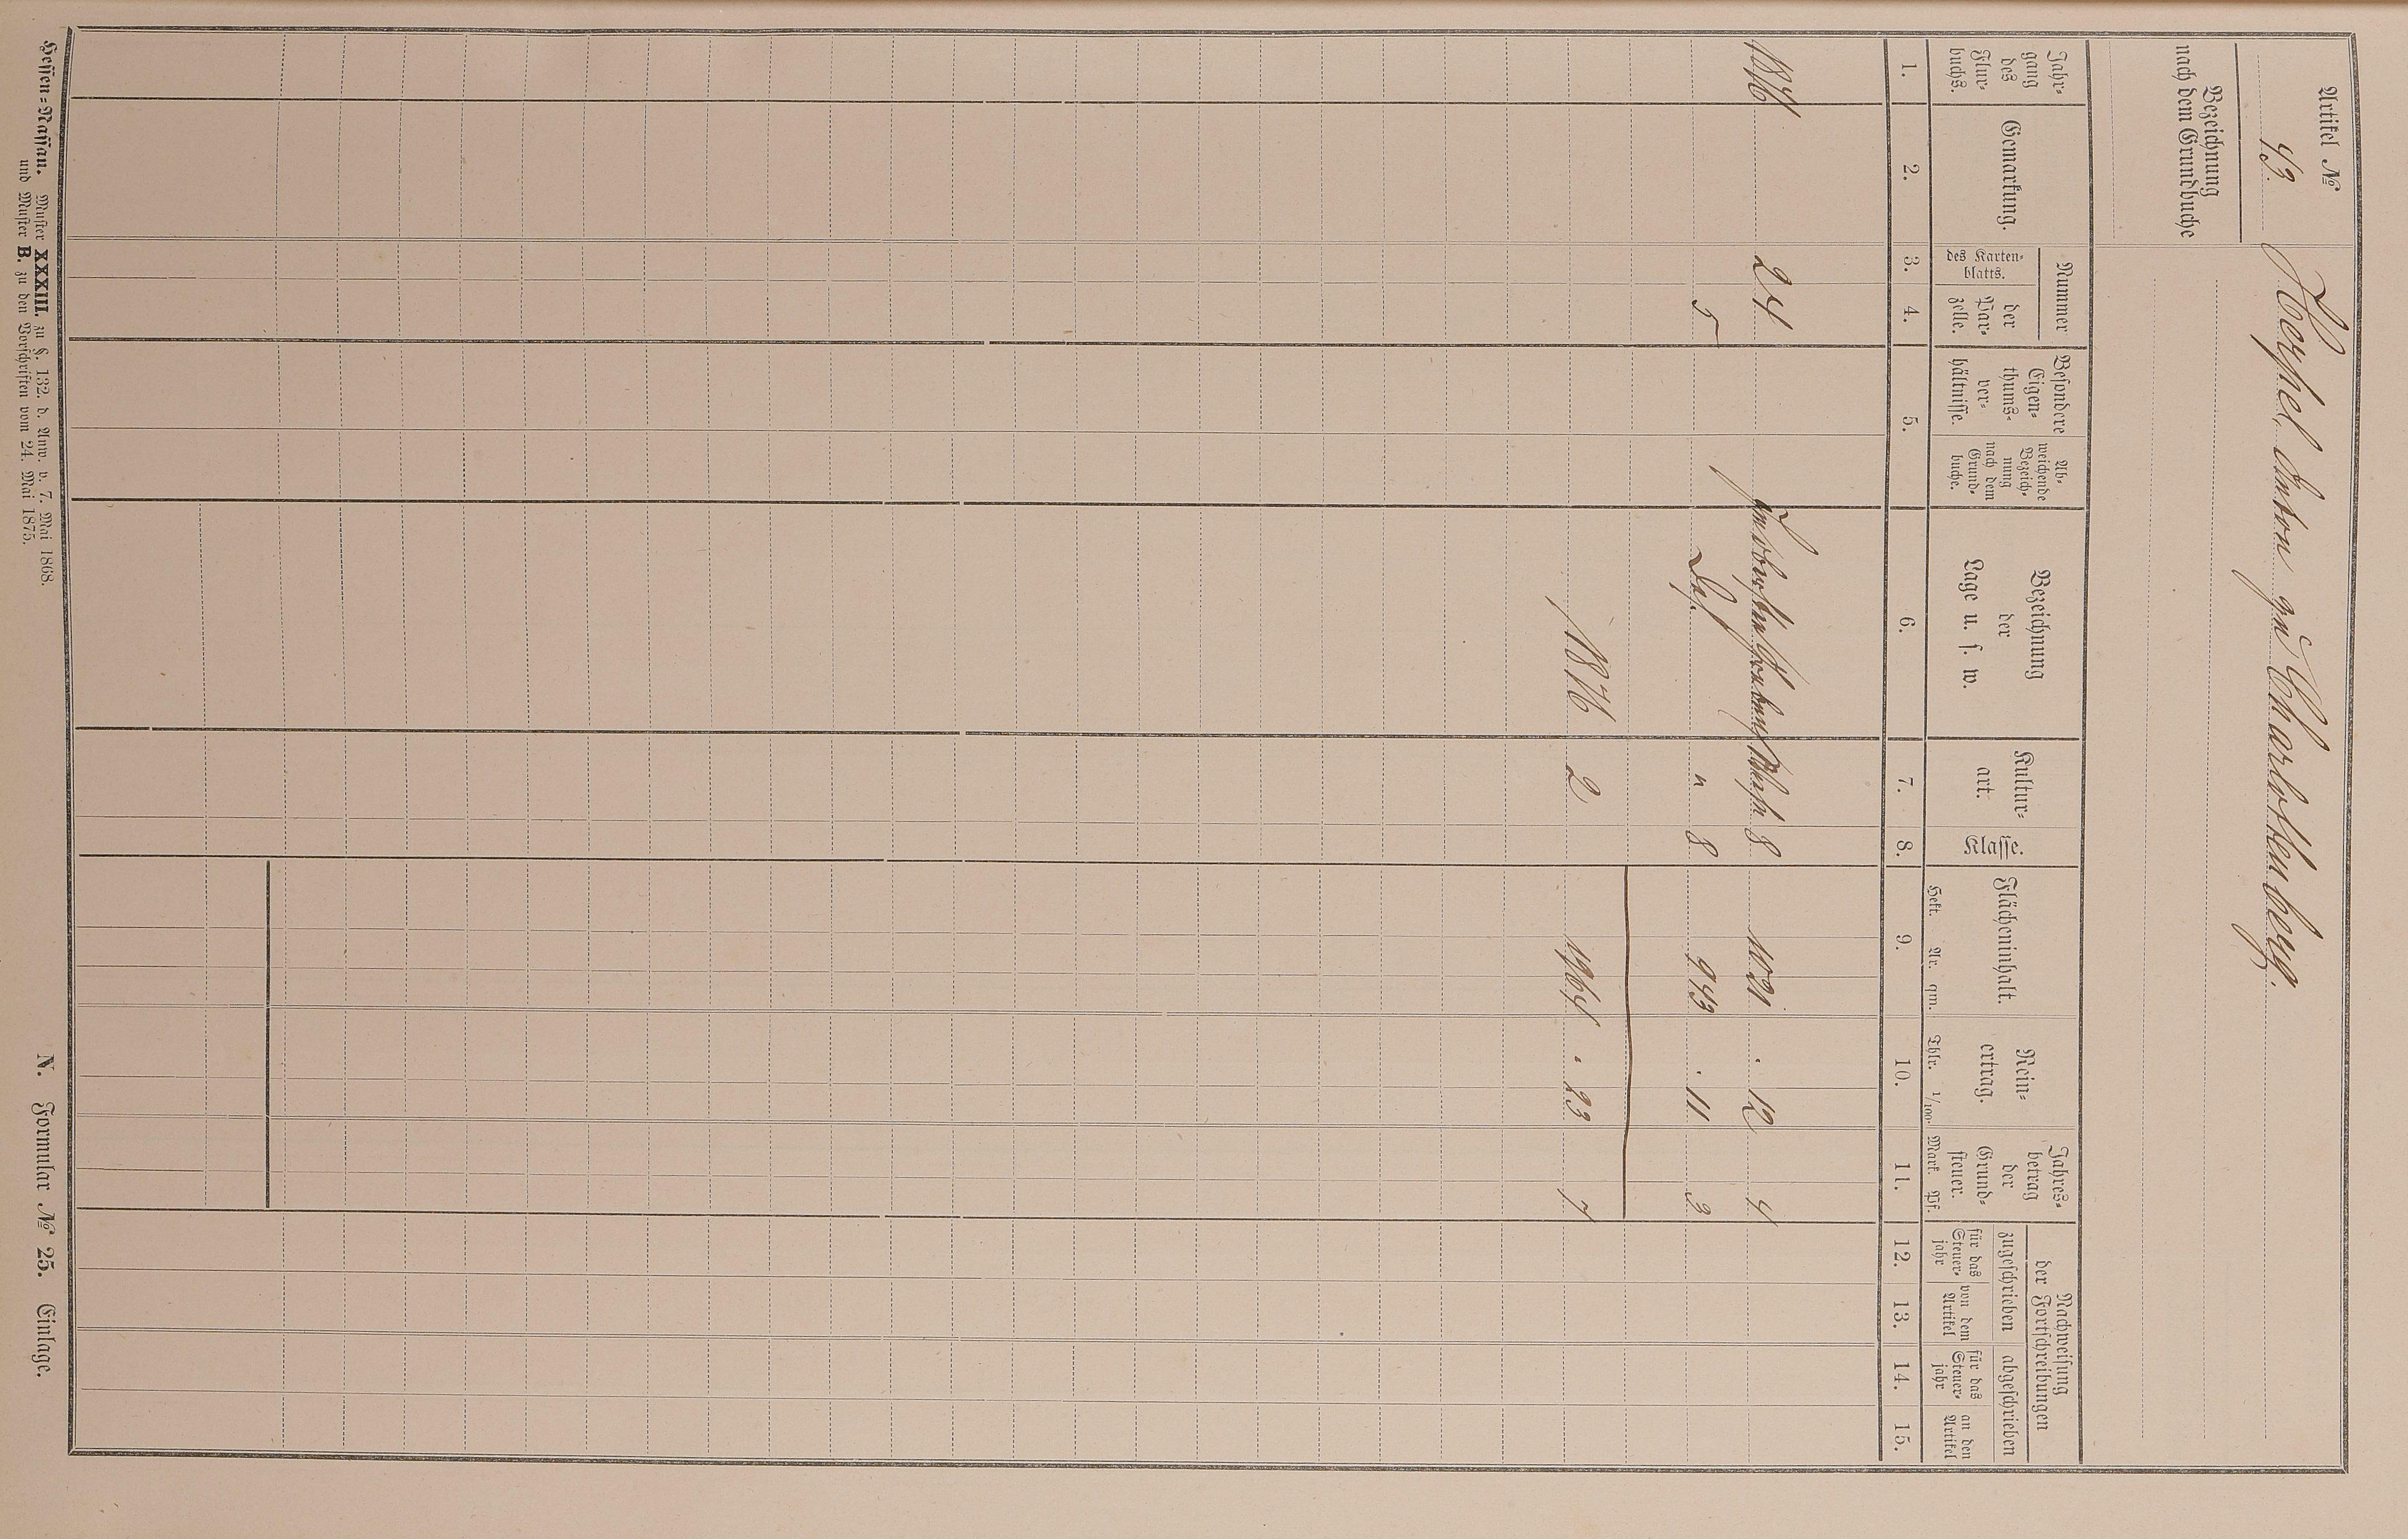 Artikel №
43.
Bezeichnung
nach dem Grundbuche
Anton zu Charlottenberg.
Jahr-
gang
des
Flur-
buchs.
Gemarkung.
Nummer
des Karten-
blatts.
der
Par-
zelle.
Besondere
Eigen-
thums-
ver-
hältnisse.
Ab-
weichende
Bezeich-
nung
nach dem
Grund-
buche.
Bezeichnung
der
Lage u. s. w.
Kultur-
art.
Klasse.
Flächeninhalt.
Hekt. Ar. qm.
Rein-
ertrag.
Thlr. 1/100.
Jahres-
betrag
der
Grund-
steuer.
Mark. Pf.
Nachweisung
der Fortschreibungen
zugeschrieben
abgeschrieben
für das
Steuer-
jahr
von dem
Artikel
für das
Steuer-
jahr
an den
Artikel
1. 2. 3. 4. 5. 6. 7. 8. 9. 10. 11. 12. 13. 14. 15.
1876 2 4 8 10 21 . 12 4
5 Das. " 8 9 43 . 11 3
1876 2 19 64 . 23 7
Hessen-Nassau. Muster XXXIII. zu §. 132. d. Anw. v. 7. Mai 1868.
und Muster B. zu den Vorschriften vom 24. Mai 1875.
N. Formular № 25. Einlage.